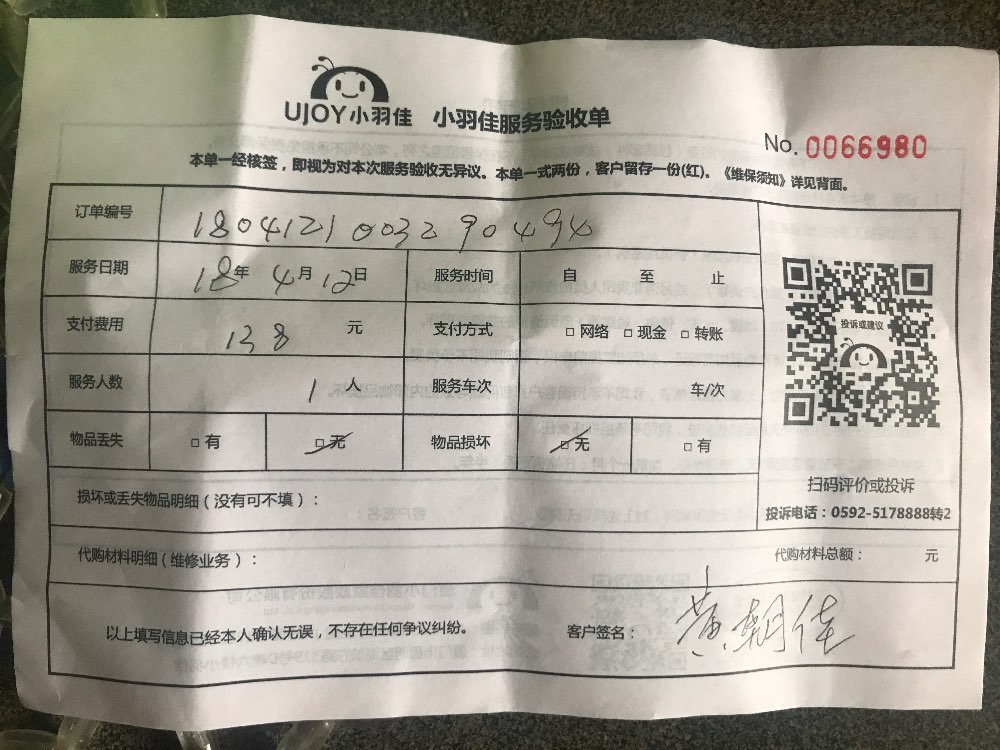 UJOY小羽佳 小羽佳服务验收单
No. 0066980
本单一经核签，即视为对本次服务验收无异议。本单一式两份，客户留存一份(红)。《维保须知》详见背面。
订单编号 18041210032290494
服务日期 18年 4月 12日 服务时间 自 至 止
支付费用 138 元 支付方式 □网络 □现金 □转账
投诉或建议
服务人数 1 人 服务车次 车/次
物品丢失 □有 □无 物品损坏 □无 □有
扫码评价或投诉
损坏或丢失物品明细（没有可不填）：
投诉电话：0592-5178888转2
代购材料明细（维修业务）： 代购材料总额： 元
以上填写信息已经本人确认无误，不存在任何争议纠纷。 客户签名： 黄朝佳